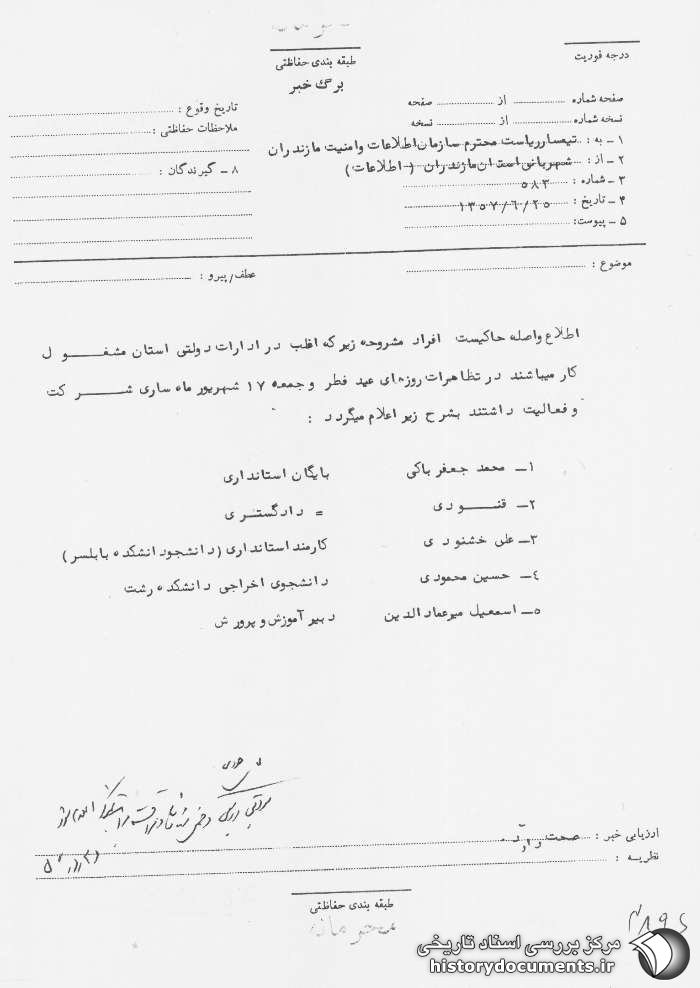 درجه فوریت
طبقه بندی حفاظتی
برگ خبر
صفحه شماره ............ از ............ صفحه
نسخه شماره ............ از ............ نسخه
۱ ـ به : تیمسار ریاست محترم سازمان اطلاعات وامنیت مازندران
۲ ـ از : شهربانی استان مازندران ( اطلاعات )
۳ ـ شماره : ۵۸۳
۴ ـ تاریخ : ۱۳۵۷/۶/۲۵
۵ ـ پیوست:
تاریخ وقوع :
ملاحظات حفاظتی :
۸ ـ گیرندگان :
موضوع :
عطف/پیرو :
اطلاع واصله حاکیست افراد مشروحه زیر که اغلب در ادارات دولتی استان مشغـــول
کار میباشند در تظاهرات روزهای عید فطر و جمعه ۱۷ شهریور ماه ساری شـــرکت
و فعالیت داشتند بشرح زیر اعلام میگردد :
۱ـ محمد جعفر باکی بایگان استانداری
۲ـ قنــودی = دادگستری
۳ـ علی خشنودی کارمند استانداری (دانشجو دانشکده بابلسر)
٤ـ حسین محمودی دانشجوی اخراجی دانشکده رشت
۵ـ اسمعیل میرعمادالدین دبیر آموزش و پرورش
ارزیابی خبر : صحت دارد .
نظریه :
طبقه بندی حفاظتی
محرمانه
مرکز بررسی اسناد تاریخی
historydocuments.ir